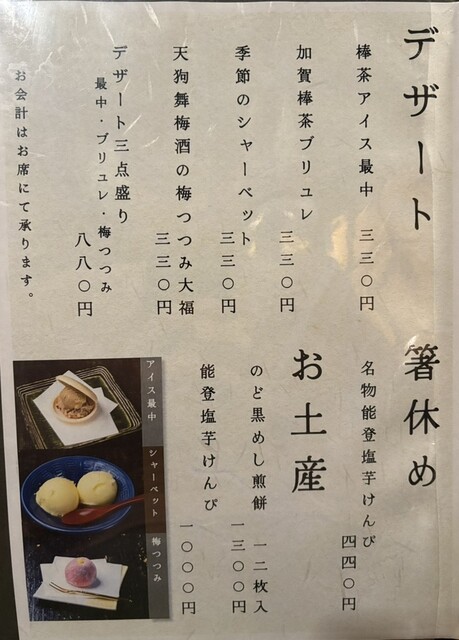 デザート
棒茶アイス最中 三三〇円
加賀棒茶ブリュレ 三三〇円
季節のシャーベット 三三〇円
天狗舞梅酒の梅つつみ大福 三三〇円
デザート三点盛り
最中・ブリュレ・梅つつみ
八八〇円
お会計はお席にて承ります。
箸休め
名物能登塩芋けんぴ 四四〇円
お土産
のど黒めし煎餅 一二枚入 一三〇〇円
能登塩芋けんぴ 一〇〇〇円
アイス最中
シャーベット
梅つつみ